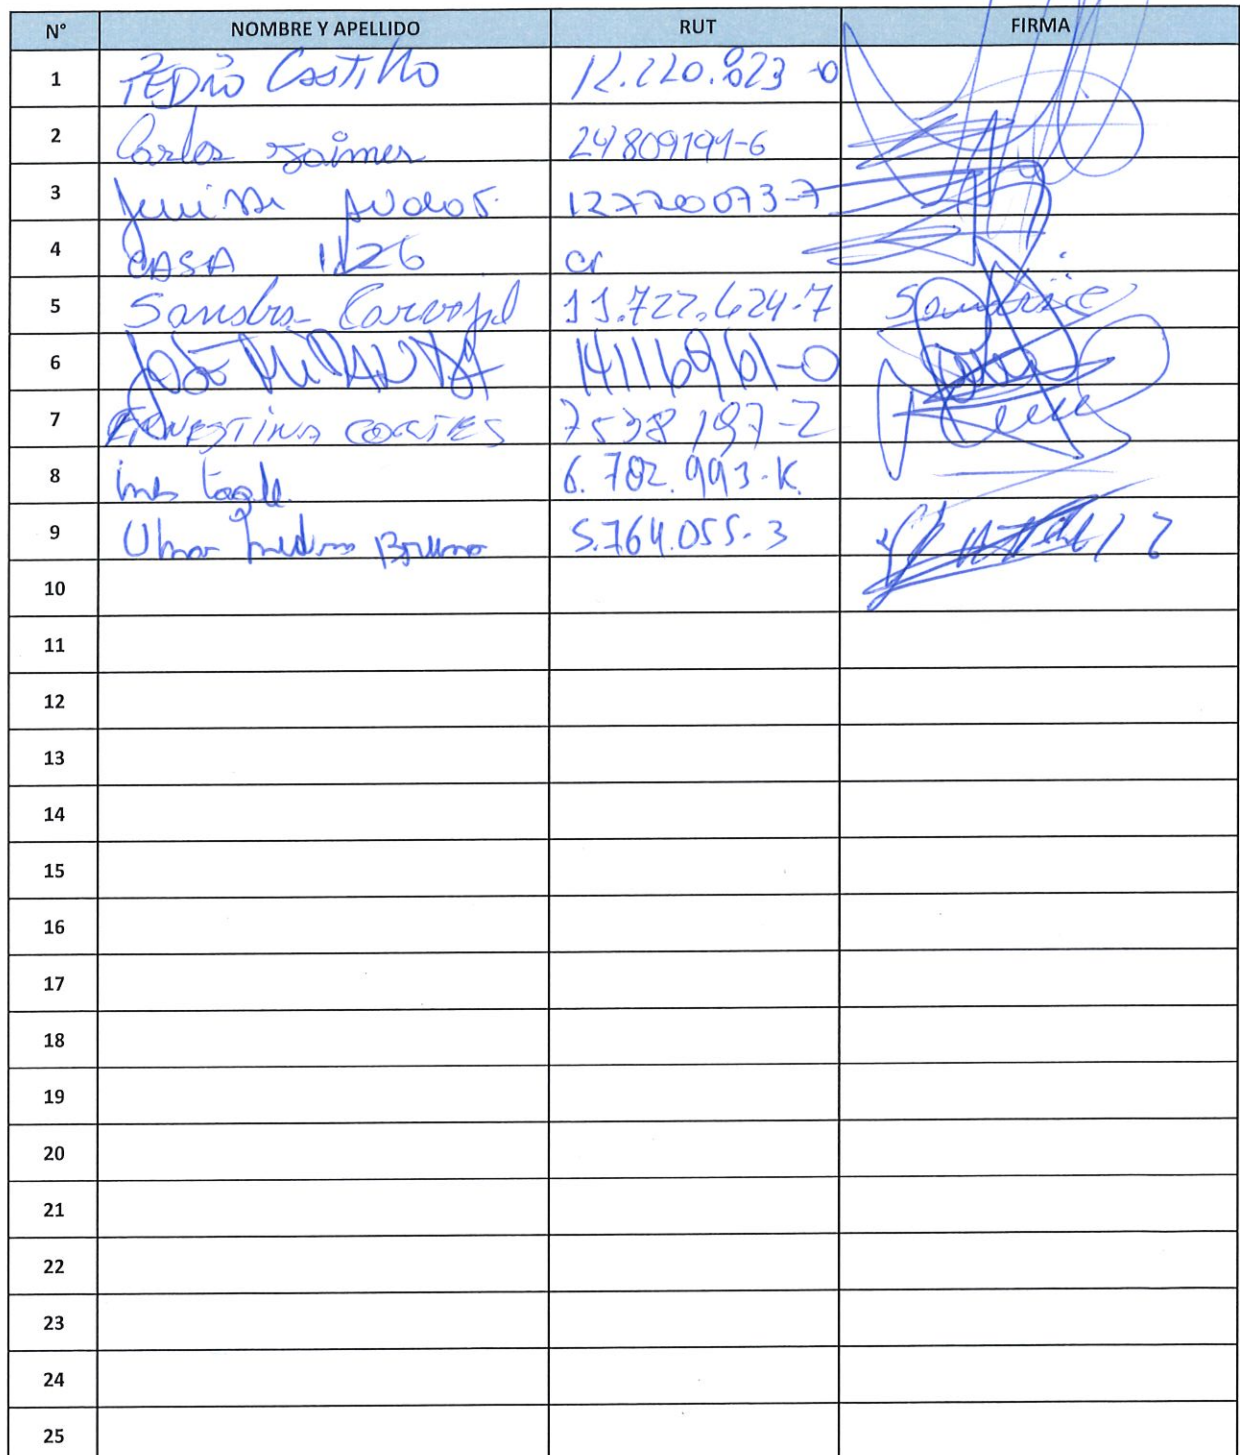 N° NOMBRE Y APELLIDO RUT FIRMA
1 PEDRO CASTILLO 12.220.823-0
2 Carlos Jaimes 24809191-6
3 127200073-7
4 CASA 1126 cr
5 Sandra Carvajal 11.722.624-7
6 JOSÉ MIRANDA 14116961-0
7 ERNESTINA CORTES 7538197-2
8 ines tagle 6.782.993-K
9 Bruno 5.764.055-3
10
11
12
13
14
15
16
17
18
19
20
21
22
23
24
25